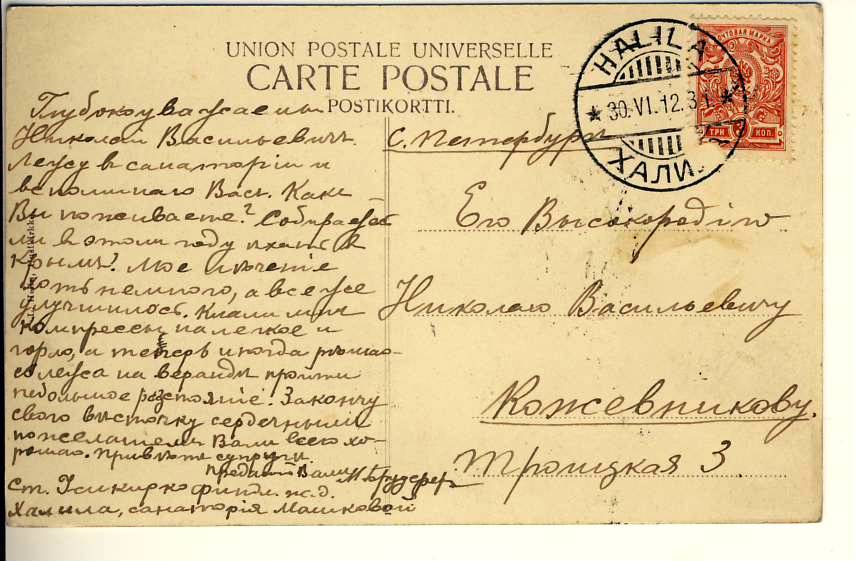 UNION POSTALE UNIVERSELLE
CARTE POSTALE
POSTIKORTTI.
HALILA
30.VI.12.
ХАЛИ
ПОЧТОВАЯ МАРКА
ТРИ КОП.
Глубокоуважаемый
Николай Васильевичъ.
Лежу въ санаторіи и
вспоминаю Васъ. Какъ
Вы поживаете? Собираетесь
ли въ этомъ году ѣхать въ
Крымъ? Мое лѣченіе
хоть немного, а все же
улучшилось. Клали мнѣ
компрессы на легкое и
горло, а теперь иногда рѣшаю-
лежа на верандѣ пройти
небольшое разстояніе. Закончу
свою вѣсточку сердечнымъ
пожеланіемъ Вамъ всего хо-
рошаго. Привѣтъ супругѣ.
Преданный Вамъ
ст. Усикирко финл. ж.д.
Халила, санаторія Машковой
С. Петербургъ
Его Высокородію
Николаю Васильевичу
Кожевникову.
Троицкая 3.